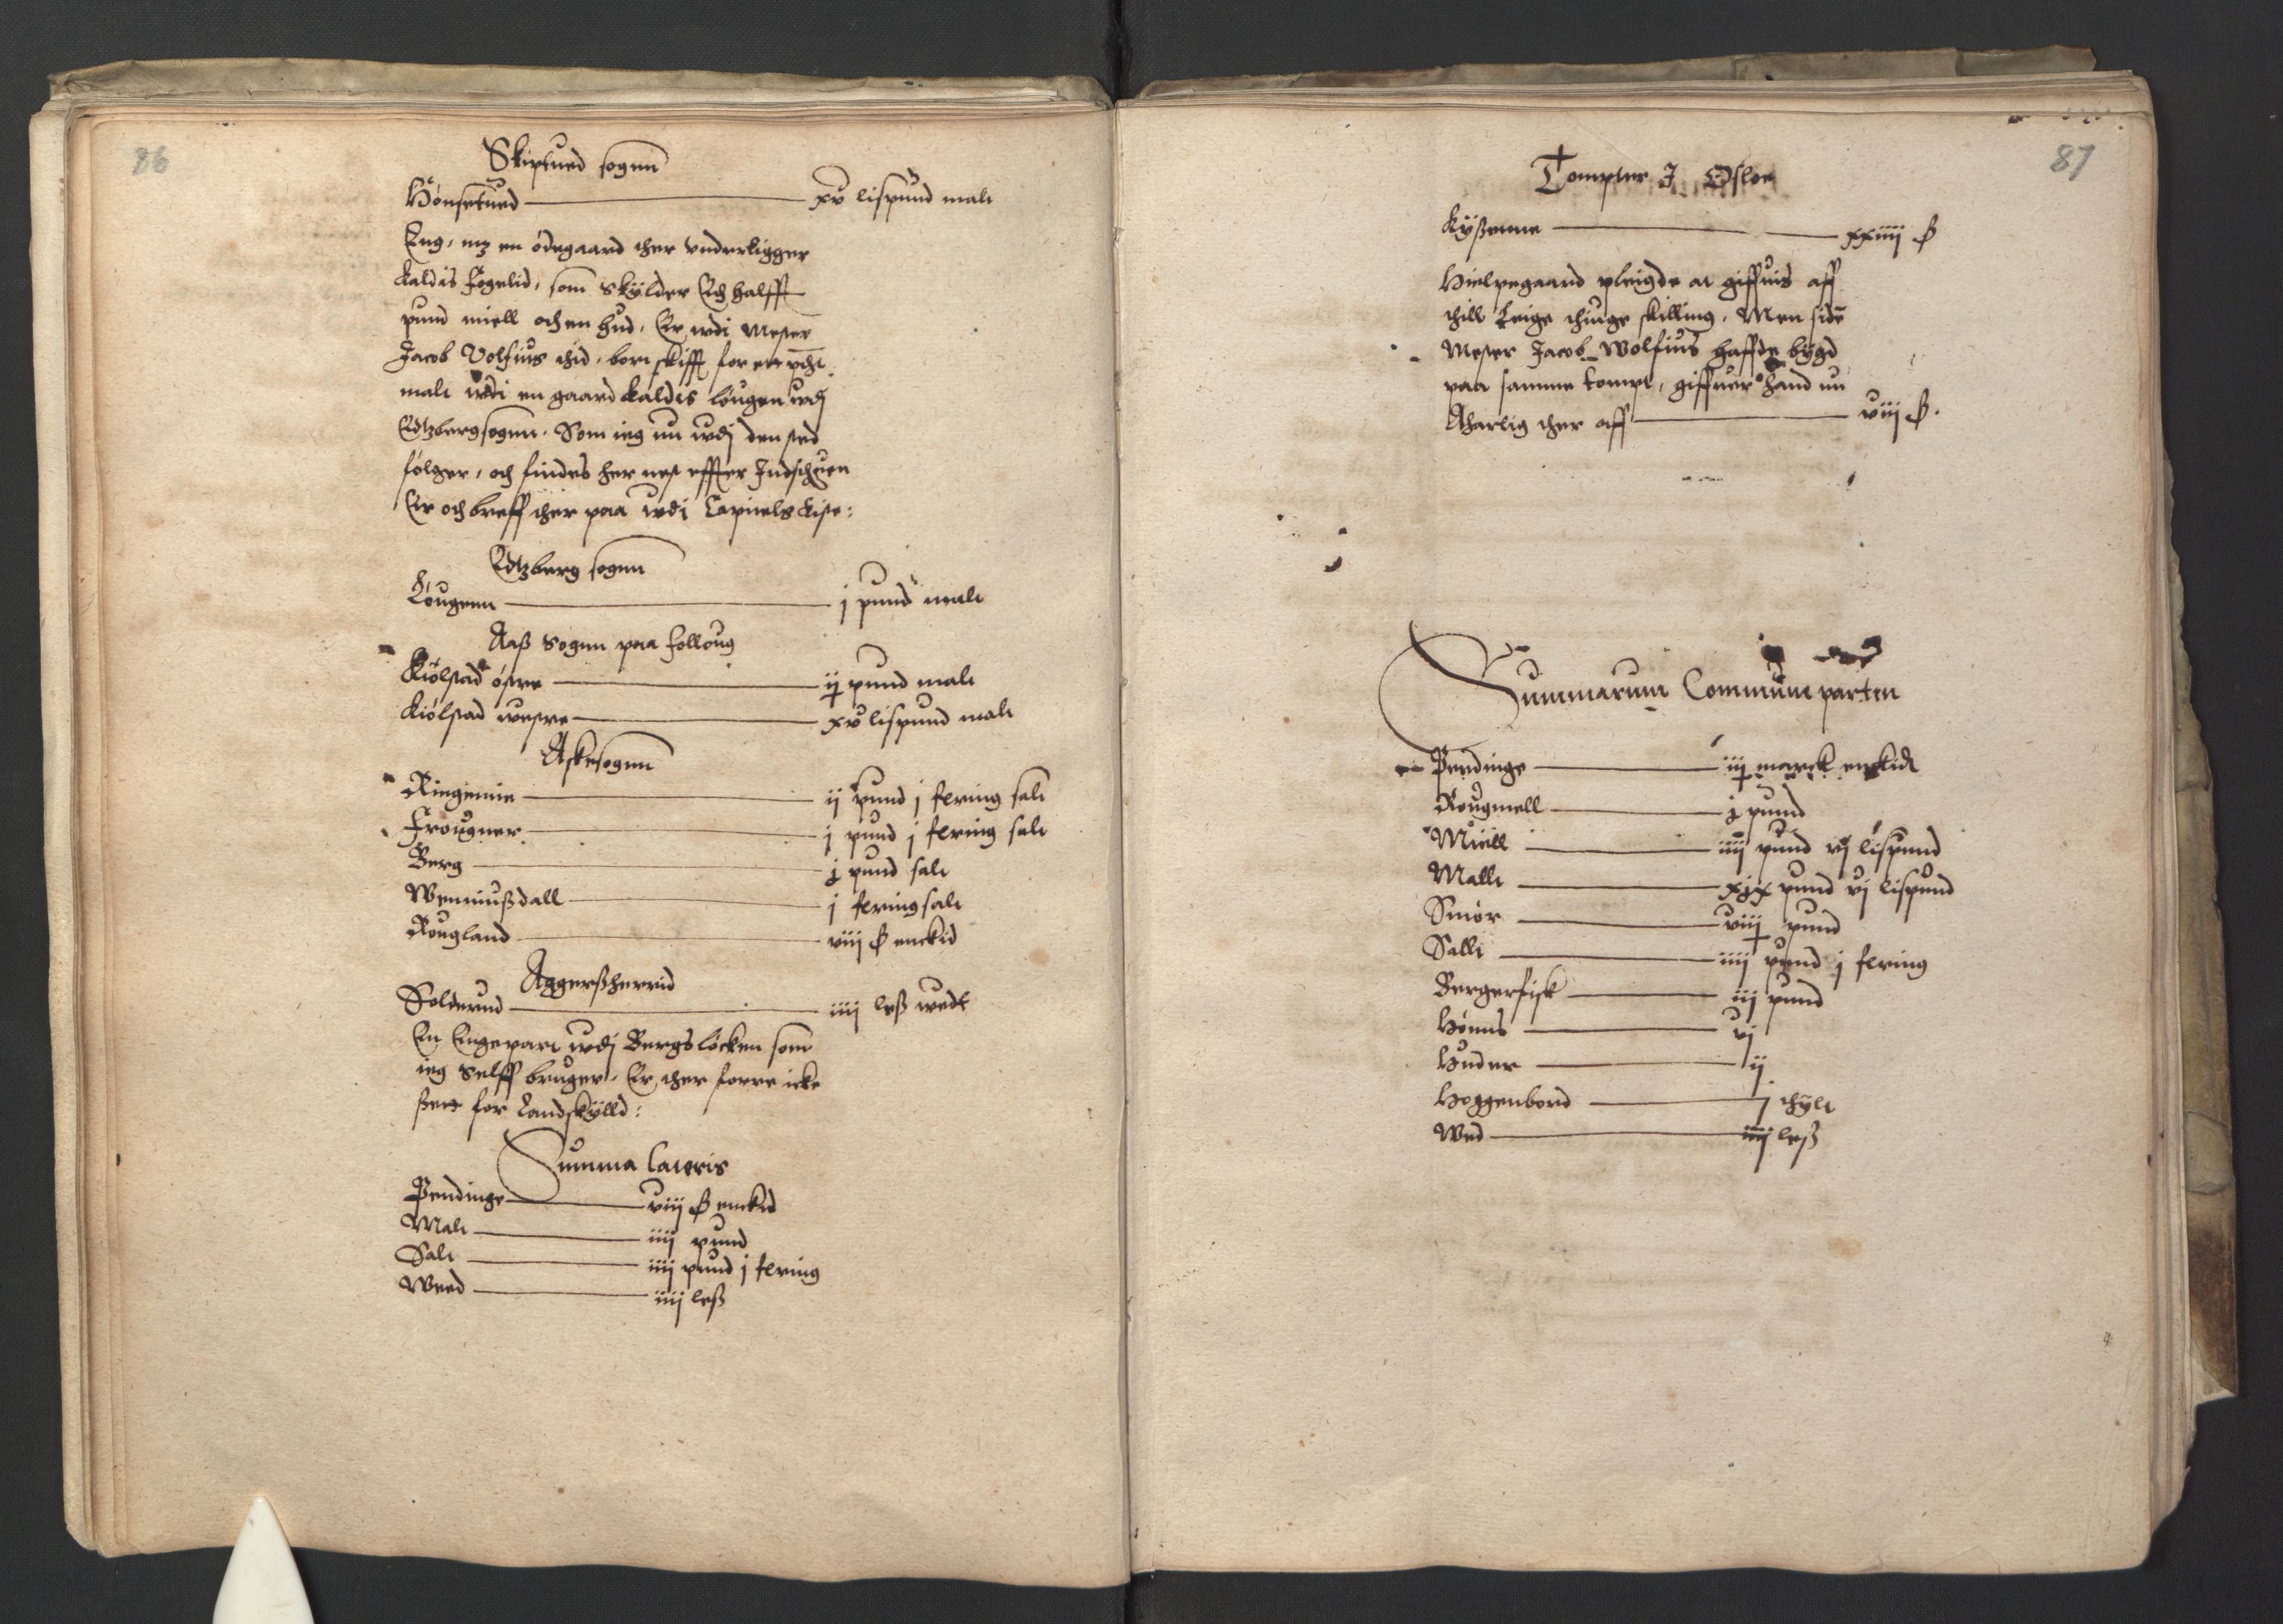 86
Skiptued sognn
Hönsetued — xv lispund malt
Eng, mz en ödegaard ther vnderligger
kaldis Fogelid, som skylder Och halfft
pund miell och en hud, Er wdi Mester
Jacob Volfius thid, bort skifft for ett pund
malt wdi en gaard kaldis lougen wdj
Edtzbergsognn. Som ieg nu wdj den sted
fölger, och findes her nest effter Indschreuen
Er och breff ther paa wdi Capitels kiste:
Edtzberg sognn
Lougenn — j pund malt
Aaß sognn paa Folloug
Kiölstad östre — ij pund malt
Kiölstad westre — xv lispund malt
Askesognn
Ringennie — ij pund j fering salt
Frougner — j pund j fering salt
Berg — j pund salt
Wenniußdall — j fering salt
Rougland — viij ß enckid
Aggerßherrid
Solderud — iiij leß wedt
En Engepart wdj Bergs löcken som
ieg selff bruger. Er ther forre icke
sett for Landskylld:
Summa Lateris
Pendinge — viij ß enckid
Malt — iiij pund
Salt — iiij pund j fering
Weed — iiij leß
87
Tompter I Osloe
Kyßenne — xxiiij ß
Hielpegaard pleigde at giffuis aff
thill Leige thiuge skilling. Men siden
Mester Jacob Wolfius haffde bygd
paa samme tompt, giffuer hand nu
Aharlig ther aff — viij ß.
Summarum Commune parten
Pendinge — iij marck enckidt
Rougmell — j pund
Miell — iiij pund vj lispund
Mallt — xjx pund vj lispund
Smör — viij pund
Sallt — iiij pund j fering
Bergerfisk — iij pund
Höns — vj
Huder — ij
Hoggenbord — j thylt
Wed — iiij leß